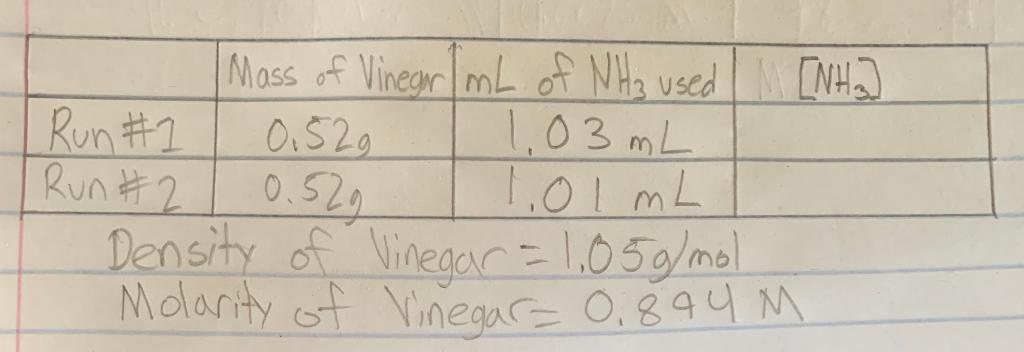 Mass of Vinegar mL of NH3 used [NH3]
Run #1 0.52g 1.03 mL
Run #2 0.52g 1.01 mL
Density of Vinegar = 1.05g/mol
Molarity of Vinegar = 0.894 M